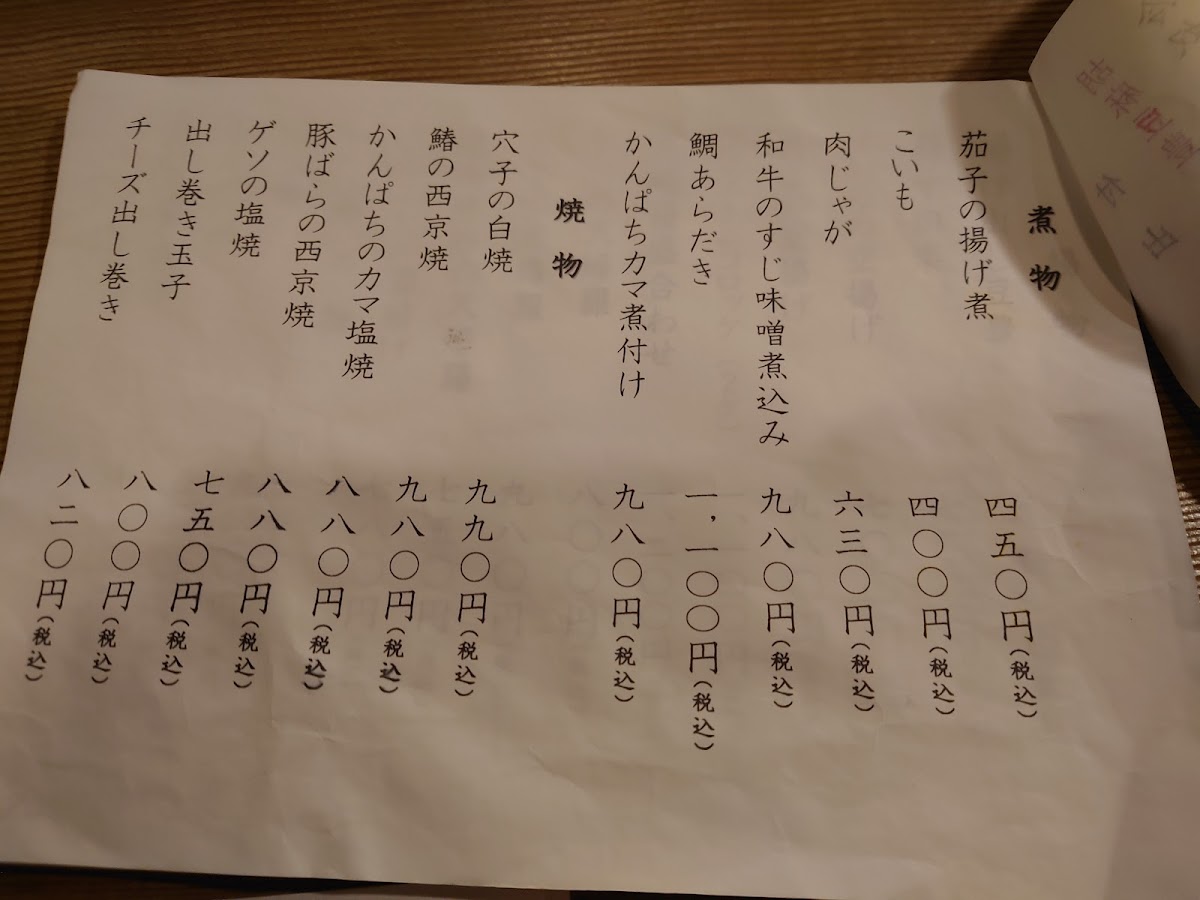 煮物
茄子の揚げ煮 四五〇円(税込)
こいも 四〇〇円(税込)
肉じゃが 六三〇円(税込)
和牛のすじ味噌煮込み 九八〇円(税込)
鯛あらだき 一,一〇〇円(税込)
かんぱちカマ煮付け 九八〇円(税込)
焼物
穴子の白焼 九九〇円(税込)
鰆の西京焼 九八〇円(税込)
かんぱちのカマ塩焼 八八〇円(税込)
豚ばらの西京焼 八八〇円(税込)
ゲソの塩焼 七五〇円(税込)
出し巻き玉子 八〇〇円(税込)
チーズ出し巻き 八二〇円(税込)